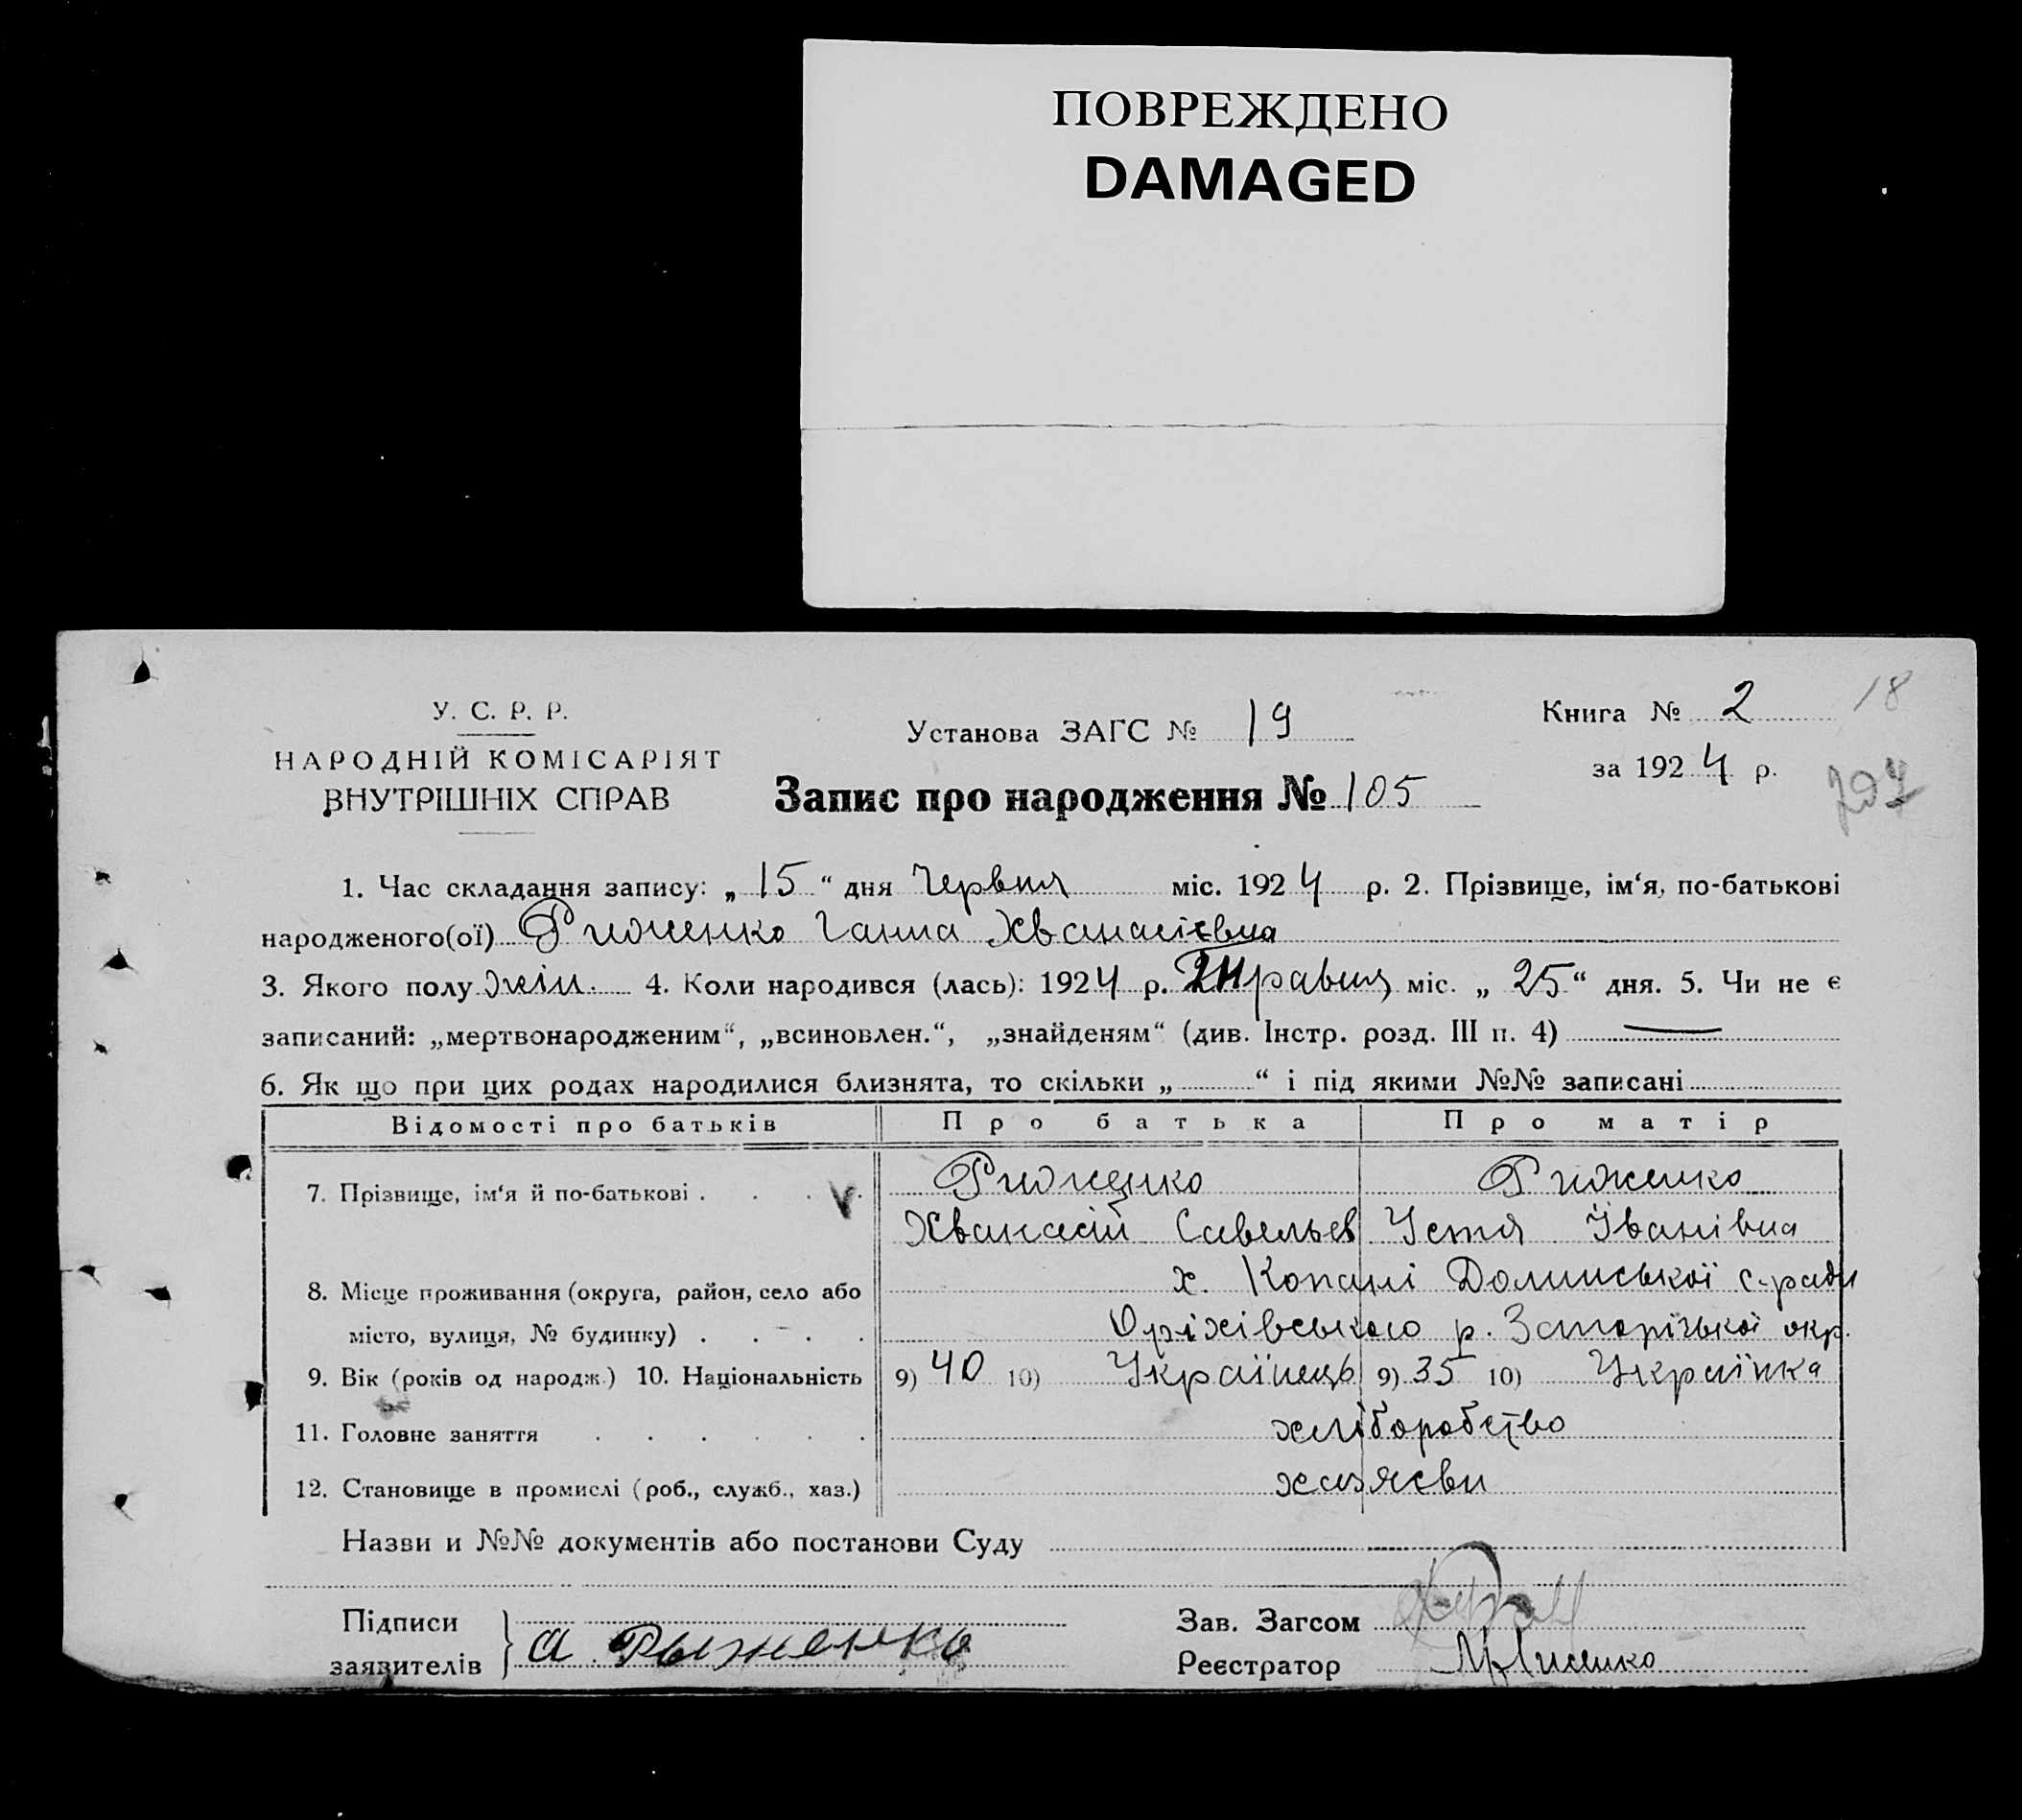 ПОВРЕЖДЕНО
DAMAGED
У. С. Р. Р.
НАРОДНІЙ КОМІСАРІЯТ
ВНУТРІШНІХ СПРАВ
Установа ЗАГС № 19
Запис про народження № 105
Книга № 2
за 1924 р.
18
1. Час складання запису: „ 15 “ дня Червня міс. 1924 р. 2. Прізвище, ім‘я, по-батькові
народженого(ої) Риженко Ганна Хванасієвна
3. Якого полу жін. 4. Коли народився (лась): 1924 р. Травня міс. „ 25 “ дня. 5. Чи не є
записаний: „мертвонародженим“, „всиновлен.“, „знайденям“ (див. Інстр. розд. III п. 4) —
6. Як що при цих родах народилися близнята, то скільки „ “ і під якими №№ записані
Відомості про батьків Про батька Про матір
7. Прізвище, ім‘я й по-батькові . . . . Риженко Риженко
Хванасій Савельев Устя Іванівна
8. Місце проживання (округа, район, село або х. Копані Долинської с-ради
місто, вулиця, № будинку) . . . . Оріхівського р. Запорізької окр.
9. Вік (років од народж.) 10. Національність 9) 40 10) Українець 9) 35 10) Українка
11. Головне заняття . . . . . . хліборобство
12. Становище в промислі (роб., служб., хаз.) хазяєви
Назви и №№ документів або постанови Суду
Підписи
заявителів } А Рыженко
Зав. Загсом
Реєстратор